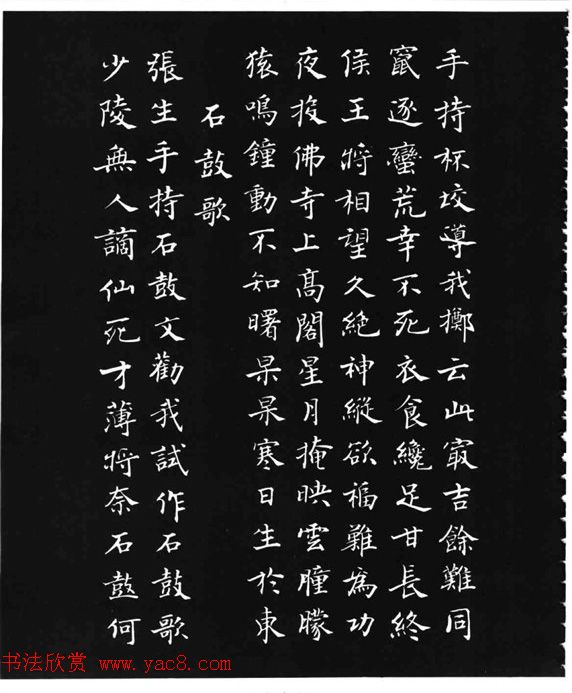 手持杯珓導我擲云此寂吉餘難同
竄逐蠻荒幸不死衣食纔足甘長終
侯王將相望久絕神縱欲福難為功
夜投佛寺上高閣星月掩映雲朣朦
猿鳴鐘動不知曙杲杲寒日生於東
石鼓歌
張生手持石鼓文勸我試作石鼓歌
少陵無人謫仙死才薄將奈石鼓何
书法欣赏 www.yac8.com